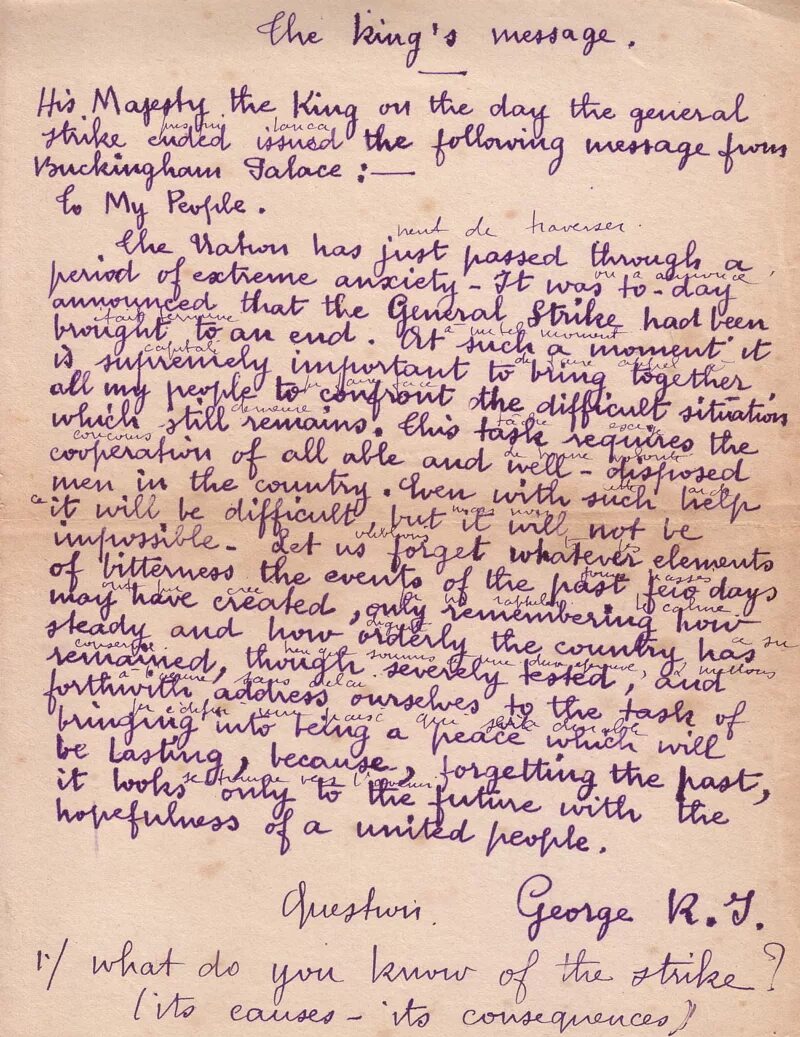 The King's message.
His Majesty the King on the day the general
lança
strike ended issued the following message from
Buckingham Palace :—
To My People.
vient de traverser
The Nation has just passed through a
on a annoncé
period of extreme anxiety - It was to-day
announced that the General Strike had been
était terminée
brought to an end. At such a moment it
capital
is supremely important to bring together
all my people to confront the difficult situation
demeure
which still remains. This task requires the
concours
cooperation of all able and well-disposed
de bonne volonté
men in the country. Even with such help
it will be difficult but it will not be
impossible - Let us forget whatever elements
oublions
of bitterness the events of the past few days
may have created, only remembering how
steady and how orderly the country has
remained, though severely tested, and
forthwith address ourselves to the task of
bringing into being a peace which will
be lasting, because, forgetting the past,
it looks only to the future with the
hopefulness of a united people.
George R.I.
Question.
1·/ what do you know of the strike?
(its causes - its consequences)